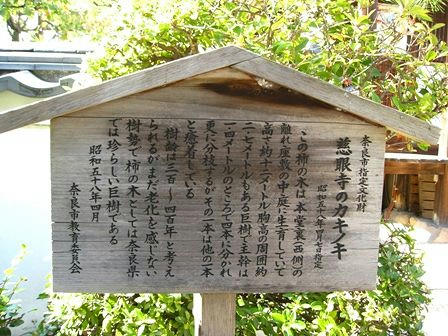 奈良市指定文化財
昭和五八年四月七日指定
慈眼寺のカキノキ
この柿の木は本堂裏(西側)の
離れ座敷の中庭に生育していて
高さ約十二メートル胸高の周囲約
二・七メートルもある巨樹で主幹は
一・四メートルのところで四本に分かれ
更に分枝するがその一本は他の一本
と癒着している
樹齢は三百〜四百年と考え
られるがまだ老化を感じない
樹勢で柿の木としては奈良県
では珍らしい巨樹である
昭和五八年四月
奈良市教育委員会